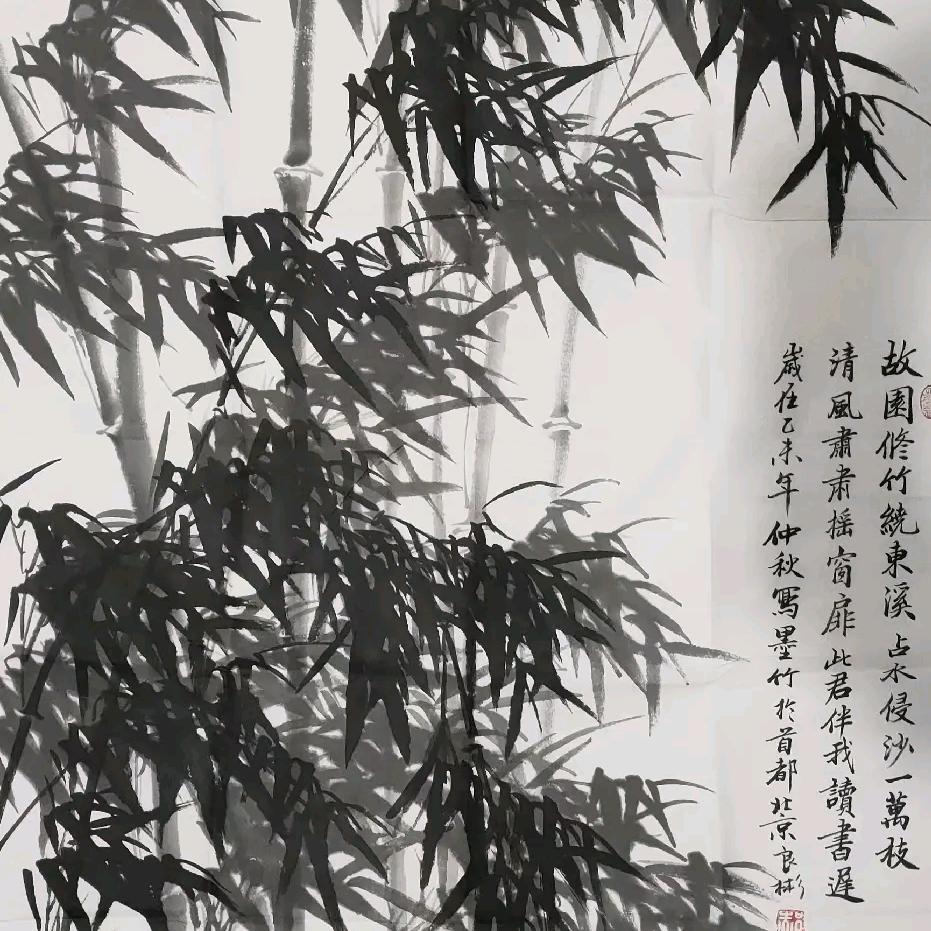 故園脩竹繞東溪占水侵沙一萬枝
清風肅肅摇窗扉此君伴我讀書遅
歲在乙未年仲秋寫墨竹於首都北京良彬